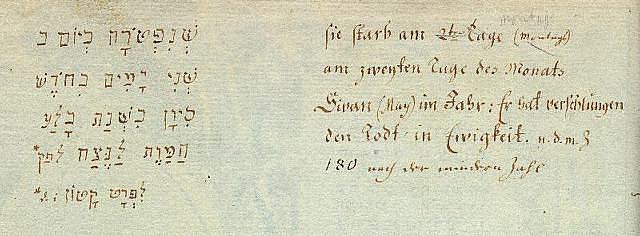 שֶׁנִּפְטְרָה בְּיוֹם ב
שְׁנֵי יָמִים בְּחֹדֶשׁ
סִיוָן בִּשְׁנַת בִּלַּע
הַמָּוֶת לָנֶצַח לפק
לִפְרָט קָטוֹן
sie starb am 2ten Tage (Montags)
am zweyten Tage des Monats
Sivan (May) im Jahr: Er hat verschlungen
den Todt in Ewigkeit. n.d.m.Z
180 nach der mindern Zahl